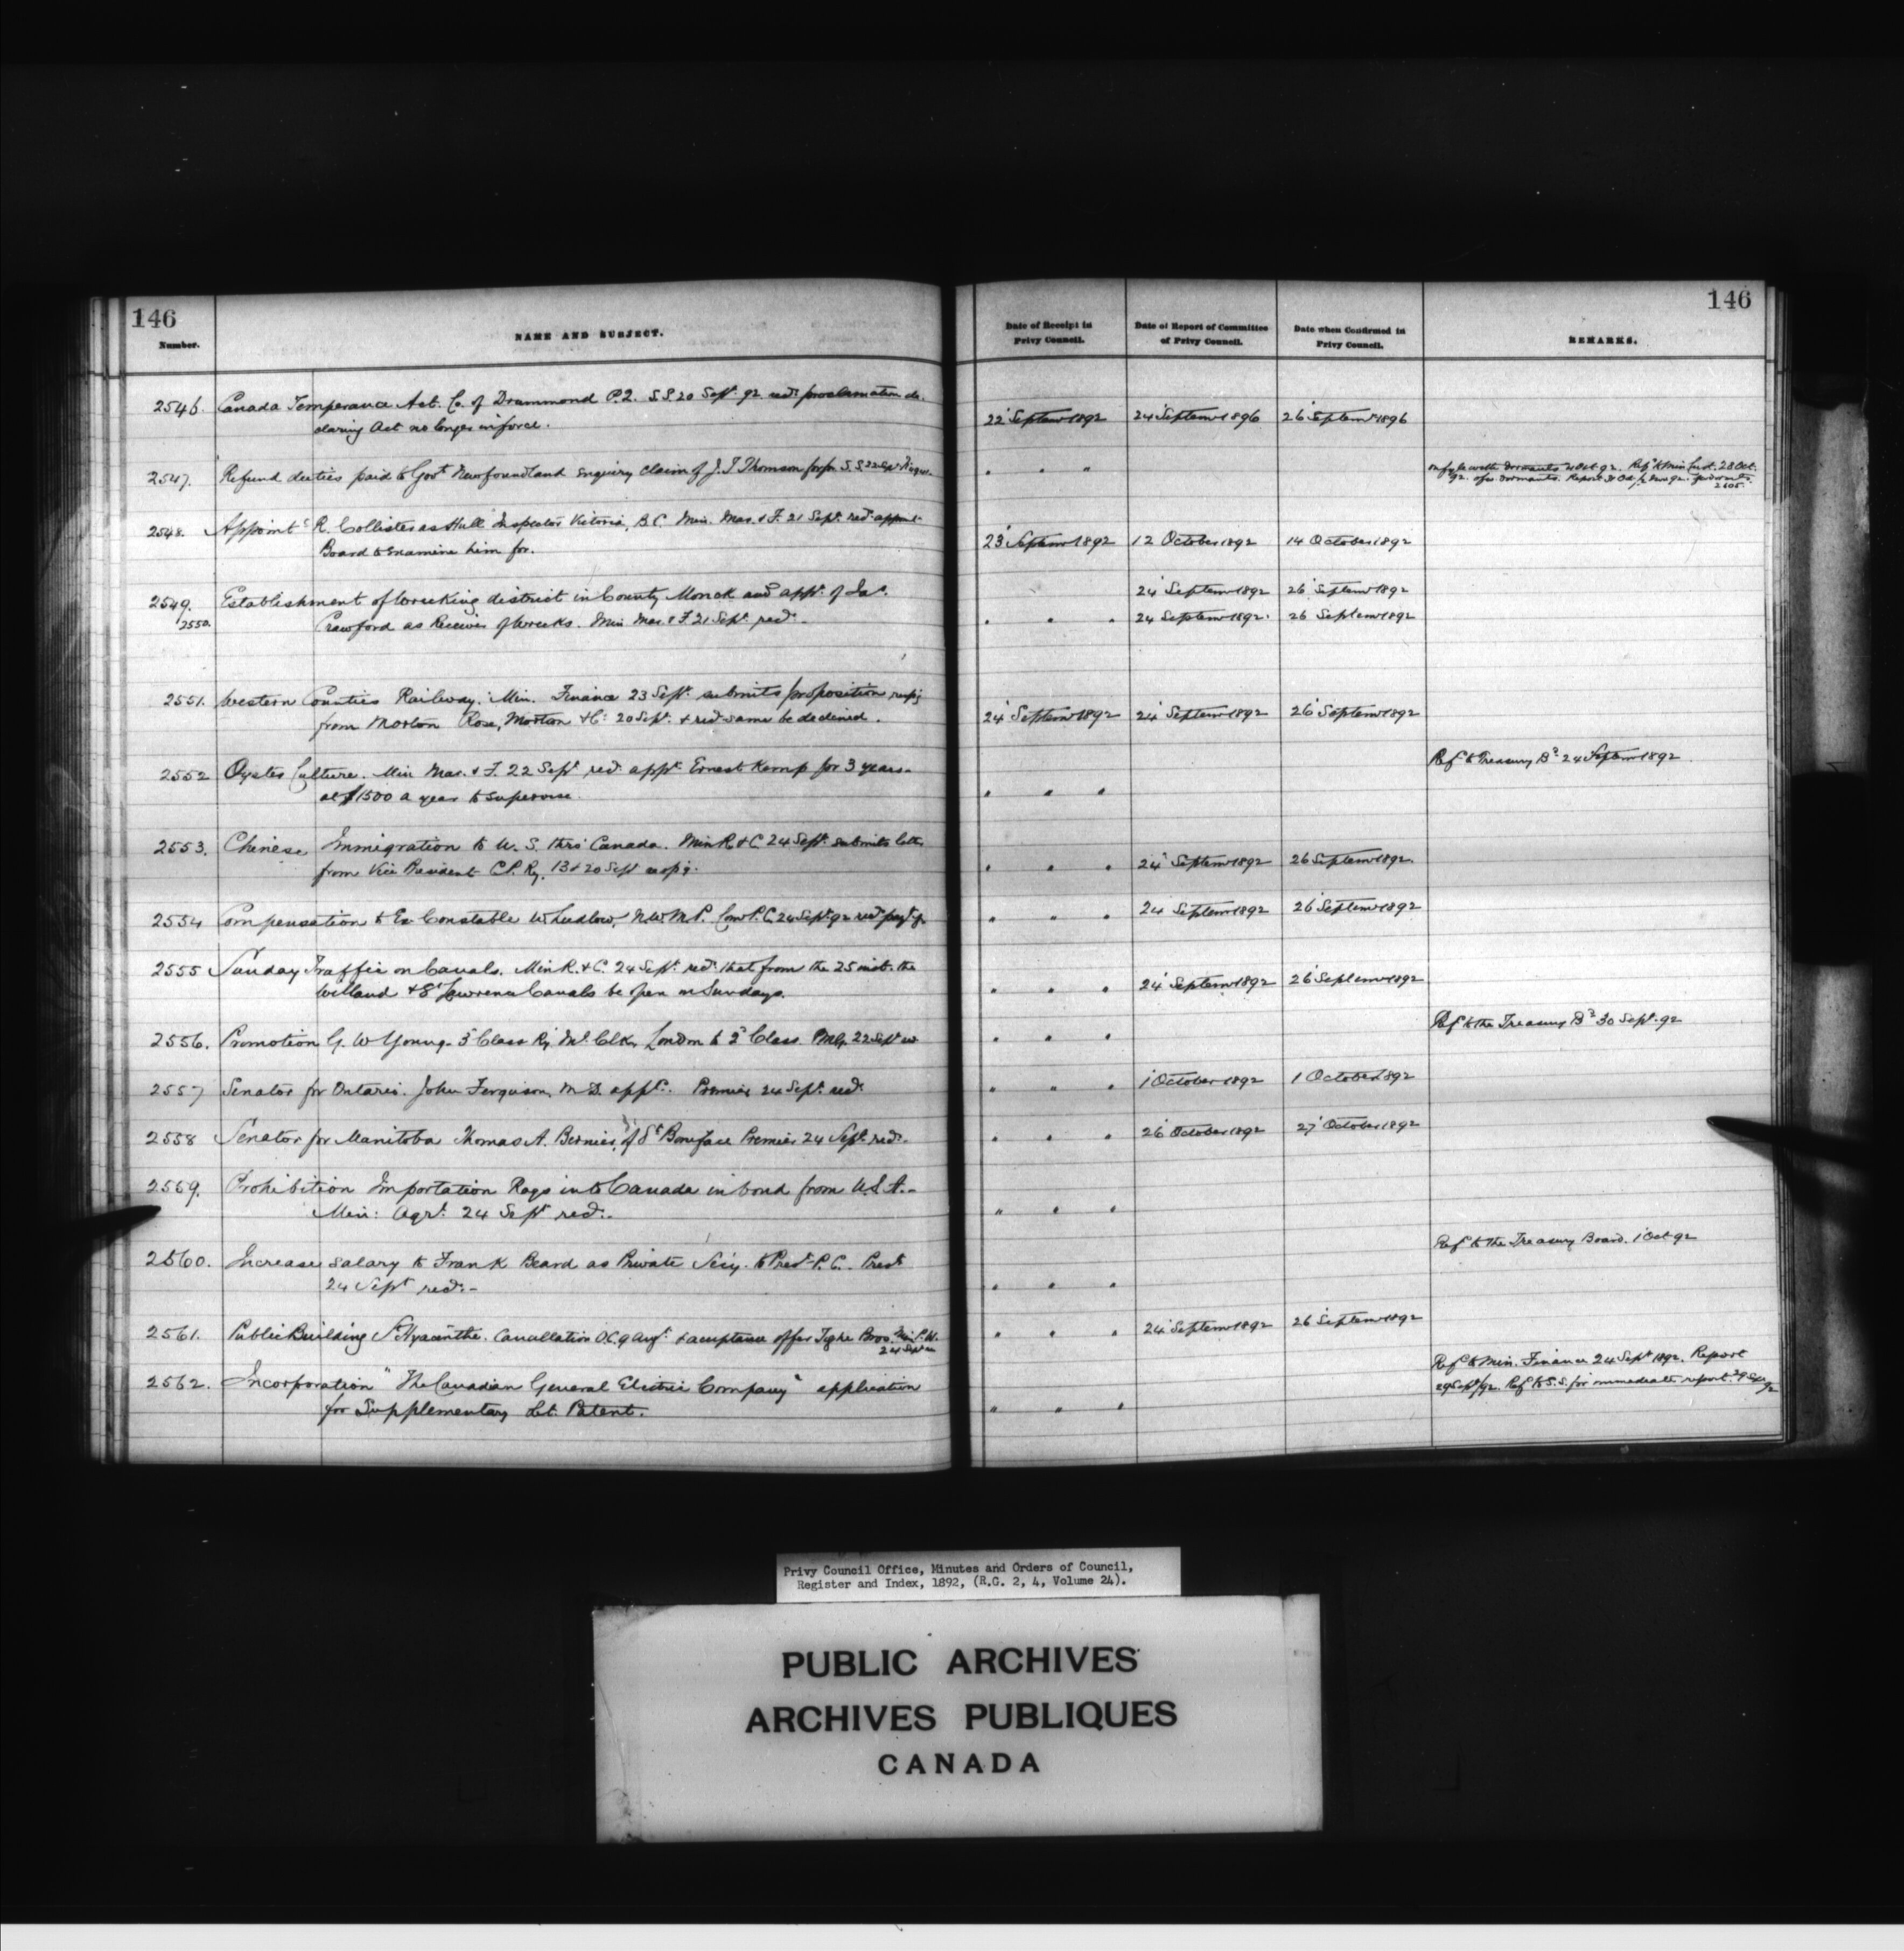 146
Number.
NAME AND SUBJECT.
2546. Canada Temperance Act. Co. of Drummond P.Q. S.S. 20 Sept. 92 recd. proclamation de-
claring Act no longer in force.
2547. Refund duties paid to Govt Newfoundland enquiry claim of J. T Thomson for S.S. 22 Sept
2548. Appointt R. Collister as Hull Inspector Victoria, B.C. Min. Mar. & F. 21 Sept. recd. appmt
Board to examine him for.
2549. Establishment of wrecking district in County Monck and appt. of Jas.
2550. Crawford as Receiver of wrecks. Min Mar. & F. 21 Sept. recd.
2551. Western Counties Railway. Min. Finance 23 Sept. submits proposition respg
from Morton Rose, Morton & Co. 20 Sept. & recd same be declined.
2552 Oyster Culture. Min Mar. & F. 22 Sept recd. appt. Ernest Kemp for 3 years
at $1500 a year to supervise.
2553. Chinese Immigration to U.S. thro' Canada. Min R & C 24 Sept. submits letters
from Vice President C.P. Ry. 13 & 20 Sept respg.
2554 Compensation to Ex Constable W Ludlow, N.W.M.P. Com P.C. 24 Sept. 92 recd payt
2555 Sunday Traffic on Canals. Min R. & C. 24 Sept. recd. that from the 25 inst. the
Welland & St Lawrence Canals be open on Sundays.
2556. Promotion G. W Young 3 Class Ry Ml. Clk, London to 2 Class. PMG. 22 Sept
2557 Senator for Ontario. John Ferguson, M.D. appt. Premier 24 Sept. recd.
2558 Senator for Manitoba Thomas A. Bernier, of St Boniface Premier 24 Sept. recd.
2559. Prohibition Importation Rags into Canada in bond from U.S.A.
Min: Agr. 24 Sept recd.
2560. Increase salary to Frank Beard as Private Secy. to Prest P.C. Prest
24 Sept recd.
2561. Public Building St Hyacinthe. Cancellation O.C. 9 Augt. & acceptance offer Tighe Bros. Min P.W.
24 Sept
2562. Incorporation "The Canadian General Electric Company" application
for Supplementary Lt. Patent.
146
Date of Receipt in
Privy Council.
Date of Report of Committee
of Privy Council.
Date when Confirmed in
Privy Council.
REMARKS.
22 September 1892 24 September 1896 26 September 1896
" " " 
23 September 1892 12 October 1892 14 October 1892
24 September 1892 26 September 1892
" " " 24 September 1892. 26 September 1892
24 September 1892 24 September 1892 26 September 1892
Refd to Treasury Bd 24 September 1892
" " "
" " " 24 September 1892 26 September 1892.
" " " 24 September 1892 26 September 1892
" " " 24 September 1892 26 September 1892
" " " Refd to the Treasury Bd 30 Sept. 92
" " " 1 October 1892 1 October 1892
" " " 26 October 1892 27 October 1892
" " "
Refd to the Treasury Board. 1 Oct 92
" " "
" " " 24 September 1892 26 September 1892
Refd to Min. Finance 24 Sept 1892. Report
29 Sept/92. Refd to S.S. for immediate report. 29 Sep 92
" " "
Privy Council Office, Minutes and Orders of Council,
Register and Index, 1892, (R.G. 2, 4, Volume 24).
PUBLIC ARCHIVES
ARCHIVES PUBLIQUES
CANADA